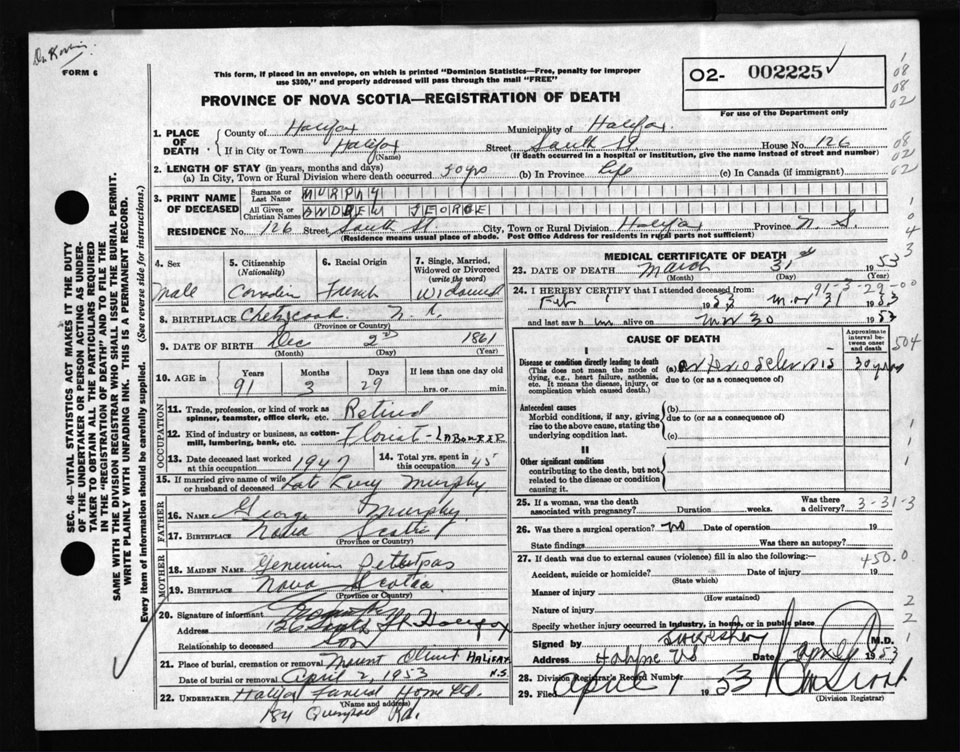 FORM 6
This form, if placed in an envelope, on which is printed "Dominion Statistics—Free, penalty for improper
use $300," and properly addressed will pass through the mail "FREE"
O2- 002225
For use of the Department only
PROVINCE OF NOVA SCOTIA—REGISTRATION OF DEATH
1. PLACE OF DEATH
County of Halifax Municipality of Halifax
If in City or Town Halifax (Name) Street South St. House No. 126
(If death occurred in a hospital or institution, give the name instead of street and number)
2. LENGTH OF STAY (in years, months and days)
(a) In City, Town or Rural Division where death occurred 50 yrs (b) In Province Life (c) In Canada (if immigrant)
3. PRINT NAME OF DECEASED
Surname or Last Name MURPHY
All Given or Christian Names ANDREW GEORGE
RESIDENCE No. 126 Street South St. City, Town or Rural Division Halifax Province N. S.
(Residence means usual place of abode. Post Office Address for residents in rural parts not sufficient)
4. Sex Male
5. Citizenship (Nationality) Canadian
6. Racial Origin French
7. Single, Married, Widowed or Divorced (write the word) Widowed
8. BIRTHPLACE Chezzetcook N. S.
(Province or Country)
9. DATE OF BIRTH Dec 2nd 1861
(Month) (Day) (Year)
10. AGE in Years 91 Months 3 Days 29 If less than one day old hrs. or min.
OCCUPATION
11. Trade, profession, or kind of work as spinner, teamster, office clerk, etc. Retired
12. Kind of industry or business, as cotton-mill, lumbering, bank, etc. Florist - LABORER
13. Date deceased last worked at this occupation 1947
14. Total yrs. spent in this occupation 45
15. If married give name of wife or husband of deceased Kate Murphy
FATHER
16. NAME George Murphy
17. BIRTHPLACE Nova Scotia
(Province or Country)
MOTHER
18. MAIDEN NAME
19. BIRTHPLACE Nova Scotia
(Province or Country)
20. Signature of informant
Address South St Halifax
Relationship to deceased Son
21. Place of burial, cremation or removal Mount Olivet HALIFAX N.S.
Date of burial or removal April 2, 1953
22. UNDERTAKER Halifax Funeral Home Ltd.
(Name and address)
184 Rd.
MEDICAL CERTIFICATE OF DEATH
23. DATE OF DEATH March 31st 1953
(Month) (Day) (Year)
91-3-29-00
24. I HEREBY CERTIFY that I attended deceased from:
Feb 1 1953 Mar 31 1953
and last saw him alive on Mar 30 1953
CAUSE OF DEATH
Approximate interval between onset and death
I
Disease or condition directly leading to death
(This does not mean the mode of dying, e.g., heart failure, asthenia, etc. It means the disease, injury, or complication which caused death.)
(a) Arteriosclerosis 30 years
due to (or as a consequence of)
Antecedent causes
Morbid conditions, if any, giving rise to the above cause, stating the underlying condition last.
(b)
due to (or as a consequence of)
(c)
II
Other significant conditions
contributing to the death, but not related to the disease or condition causing it.
25. If a woman, was the death associated with pregnancy? Duration weeks. Was there a delivery?
3-31-3
26. Was there a surgical operation? no Date of operation 19
State findings Was there an autopsy?
27. If death was due to external causes (violence) fill in also the following:—
450.0
Accident, suicide or homicide? Date of injury 19
(State which)
Manner of injury
(How sustained)
Nature of injury
Specify whether injury occurred in industry, in home, or in public place
Signed by M.D.
Address Halifax NS Date April 1953
28. Division Registrar's Record Number
29. Filed April 1 1953
(Division Registrar)
SEC. 46—VITAL STATISTICS ACT MAKES IT THE DUTY
OF THE UNDERTAKER OR PERSON ACTING AS UNDER-
TAKER TO OBTAIN ALL THE PARTICULARS REQUIRED
IN THE "REGISTRATION OF DEATH" AND TO FILE THE
SAME WITH THE DIVISION REGISTRAR WHO SHALL ISSUE THE BURIAL PERMIT.
WRITE PLAINLY WITH UNFADING INK. THIS IS A PERMANENT RECORD.
Every item of information should be carefully supplied. (See reverse side for instructions.)